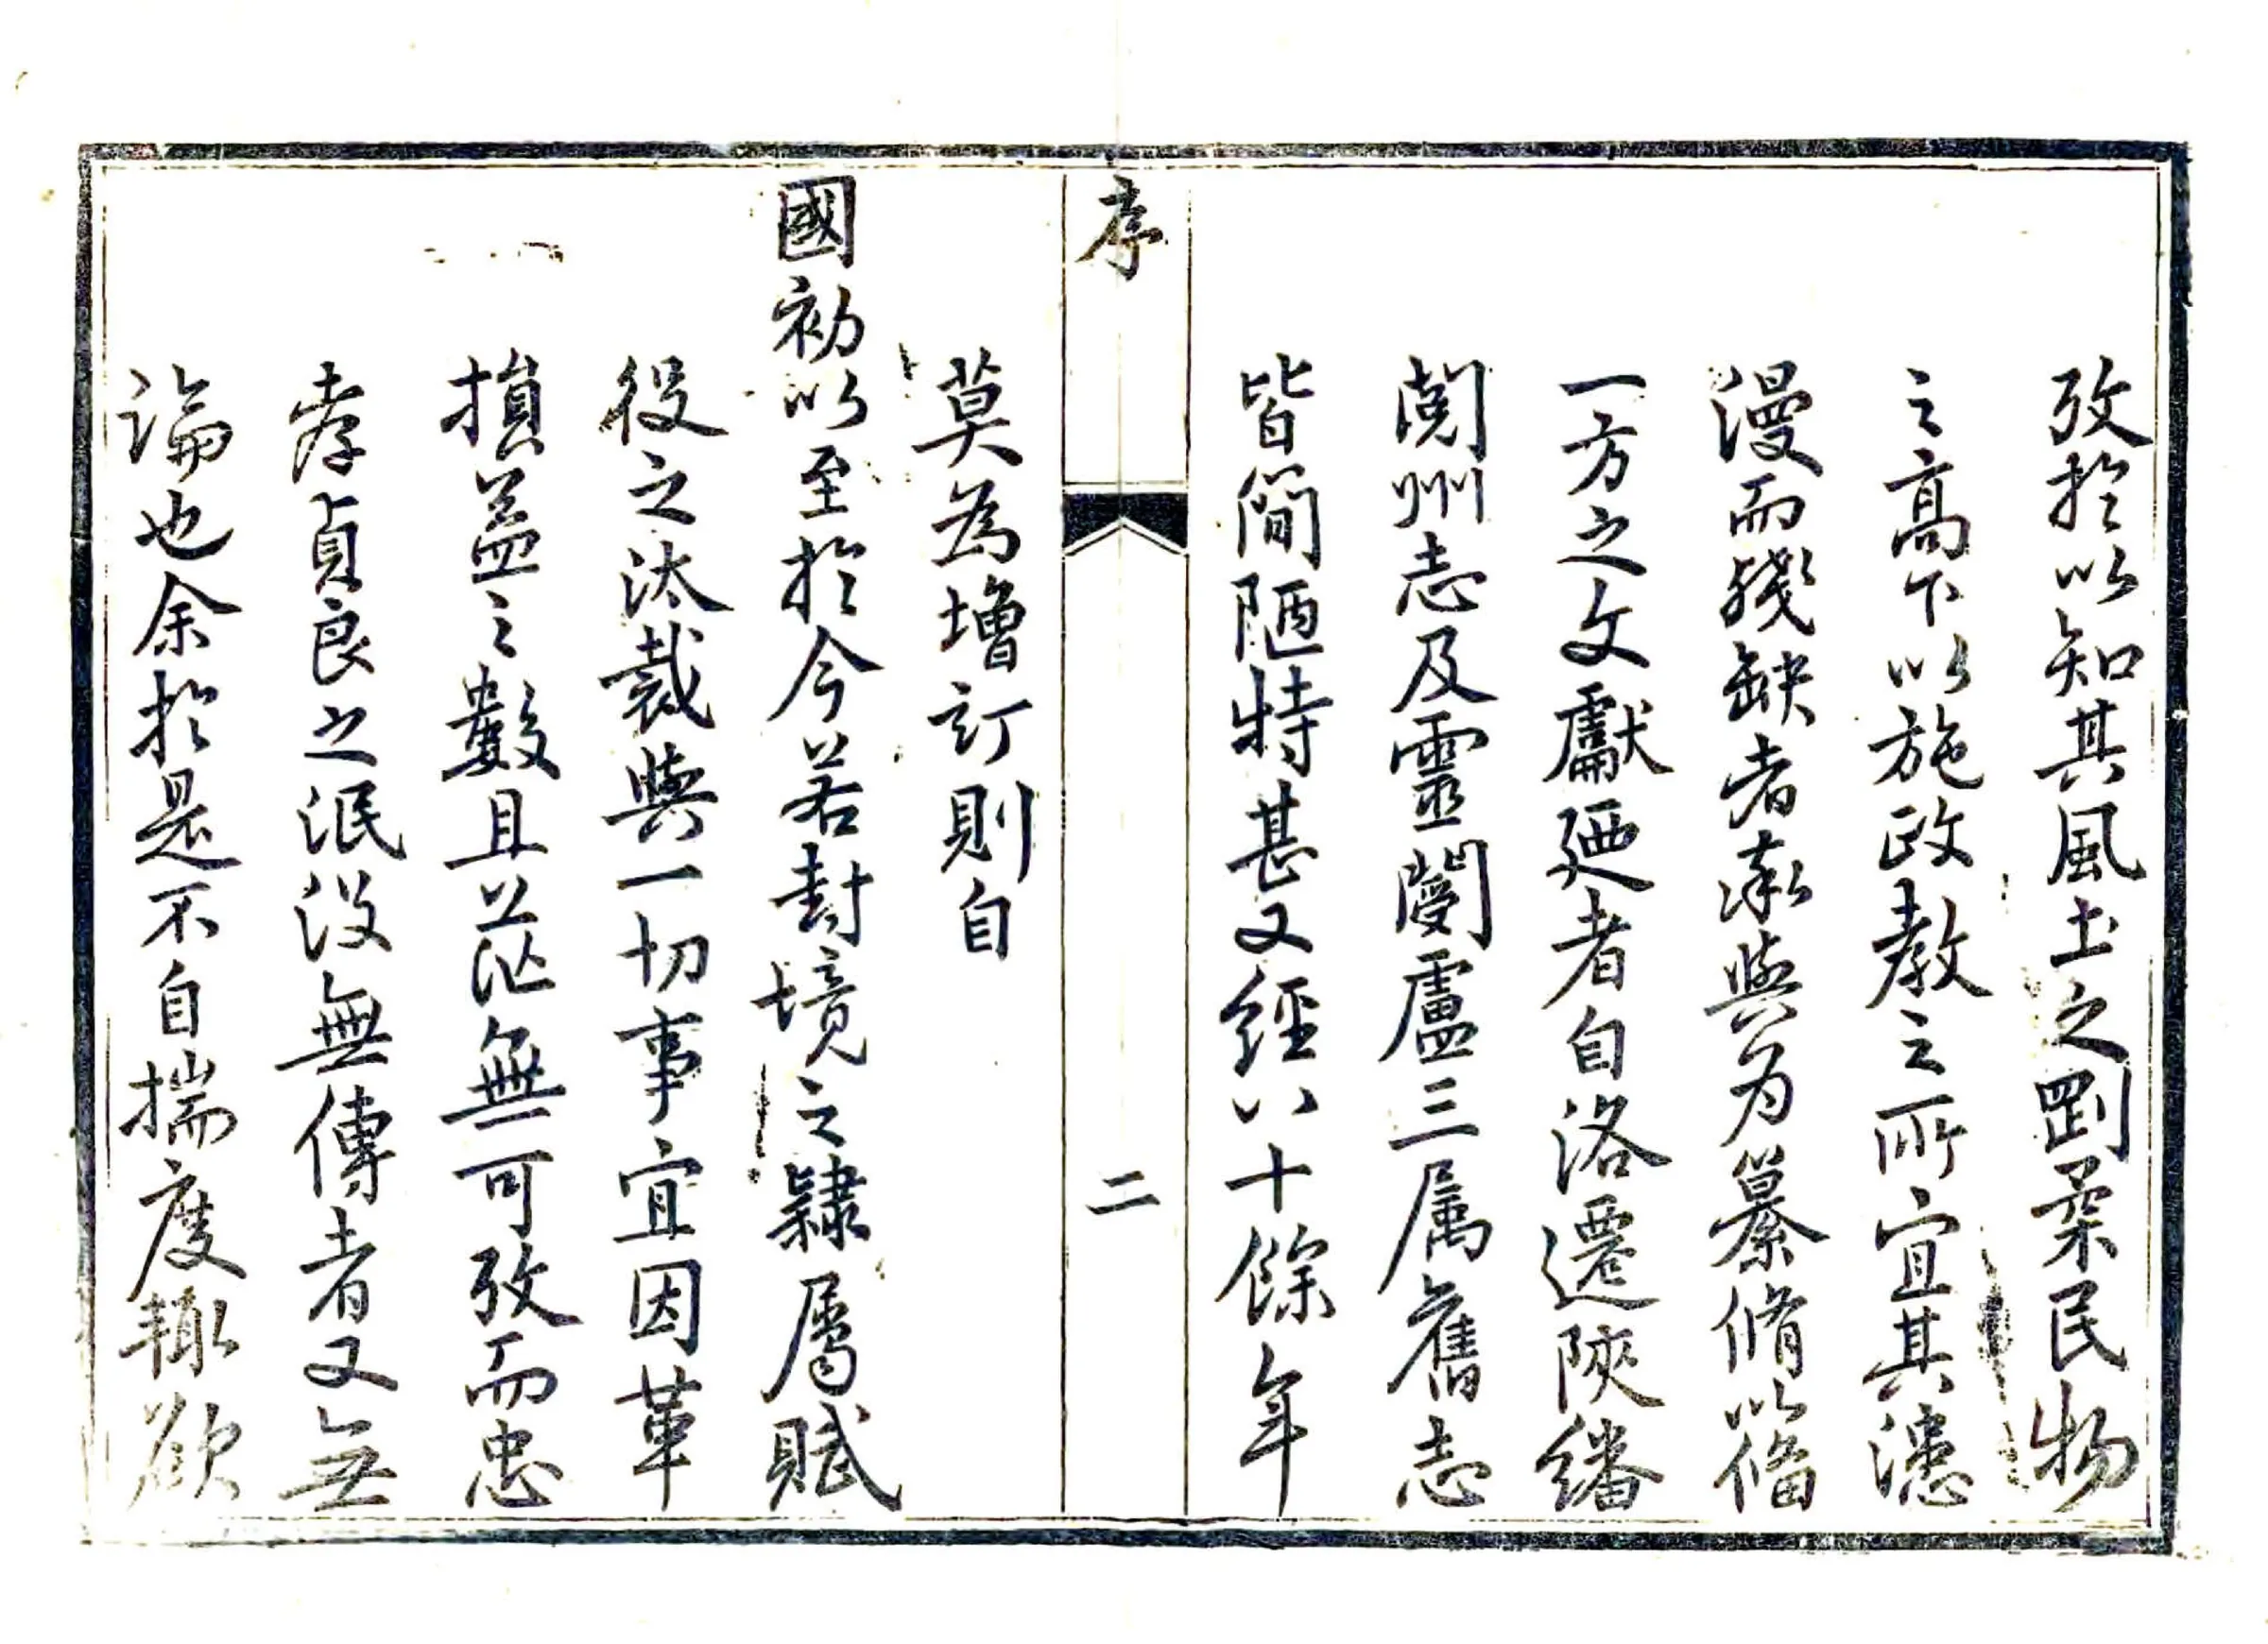 攷於以知其風土之剛柔民物
之高下以施政教之所宜其漶
漫而殘缺者亟與为纂脩以俻
一方之文獻廼者自洛遷陝繙
閱州志及靈閿盧三属舊志
皆簡陋特甚又經八十餘年
序
二
莫為增訂則自
國初以至於今若封境之隷屬賦
役之汰裁與一切事宜因革
損益之數且茫無可攷而忠
孝貞良之泯没無傳者又無
論也余於是不自揣度輙欲